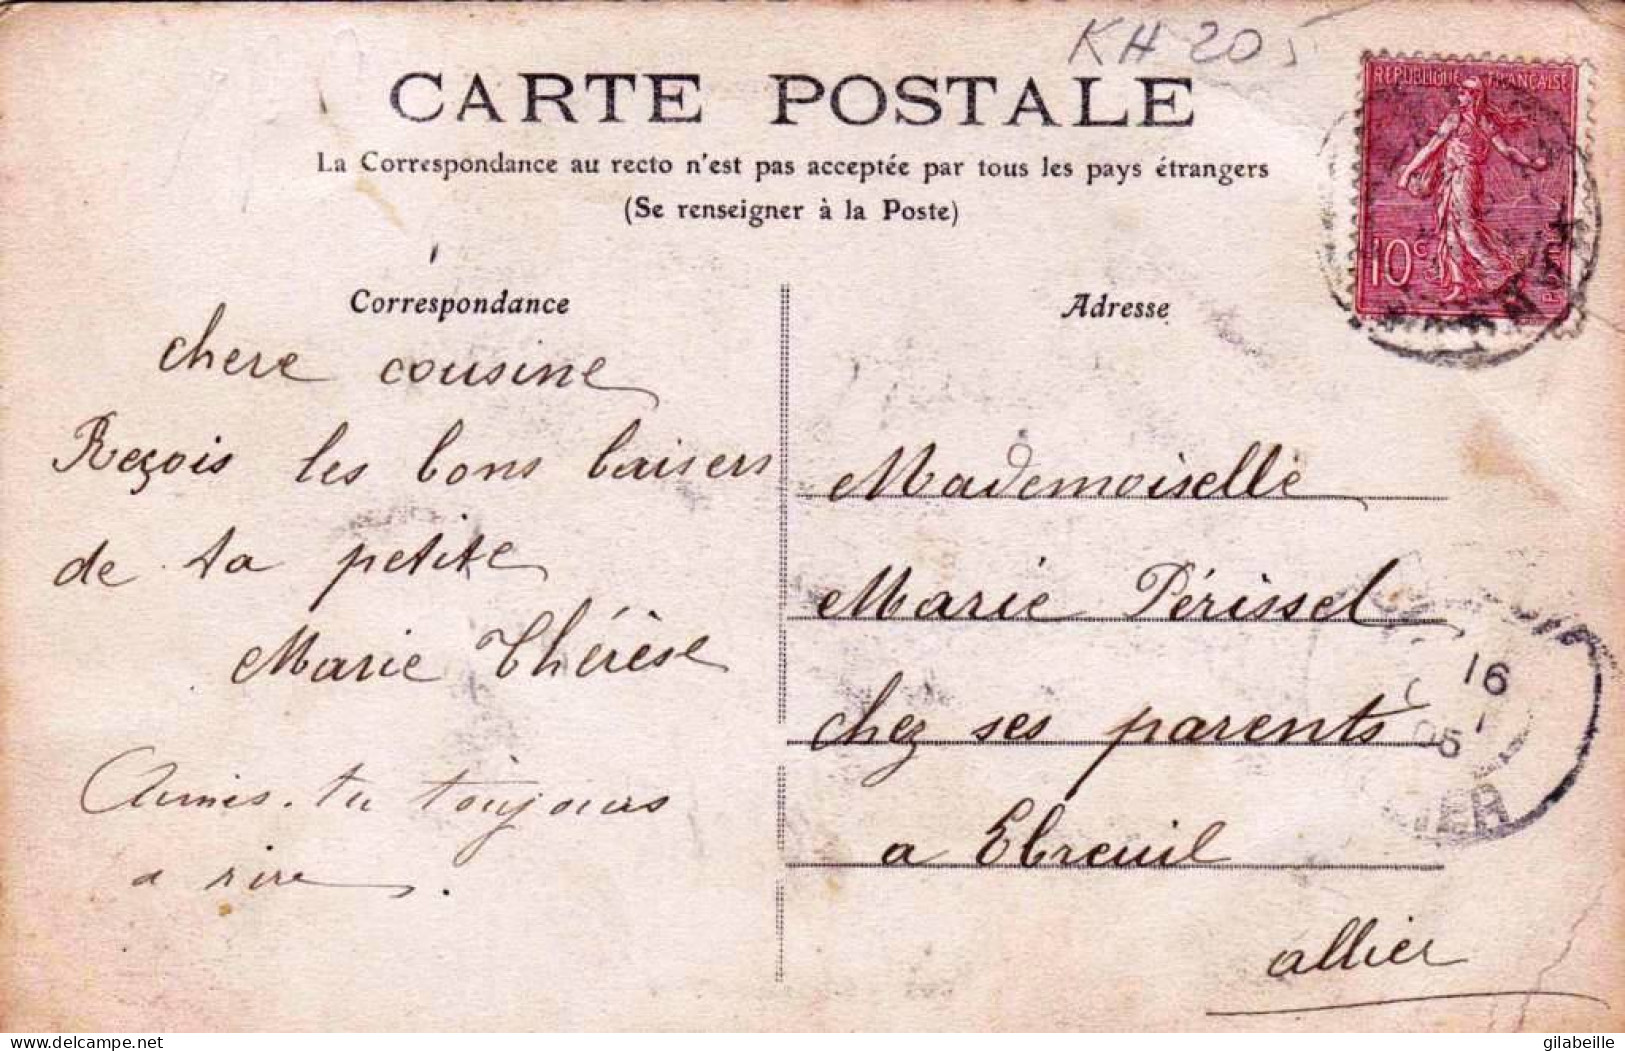 KH 205
CARTE POSTALE
La Correspondance au recto n'est pas acceptée par tous les pays étrangers
(Se renseigner à la Poste)
REPUBLIQUE FRANÇAISE
10c
Correspondance
chere cousine
Reçois les bons baisers
de ta petite
Marie Thérèse
Aimes-tu toujours
a rire.
Adresse
Mademoiselle
Marie Périssel
chez ses parents
a Ebreuil
allier
16
05
delcampe.net
gilabeille